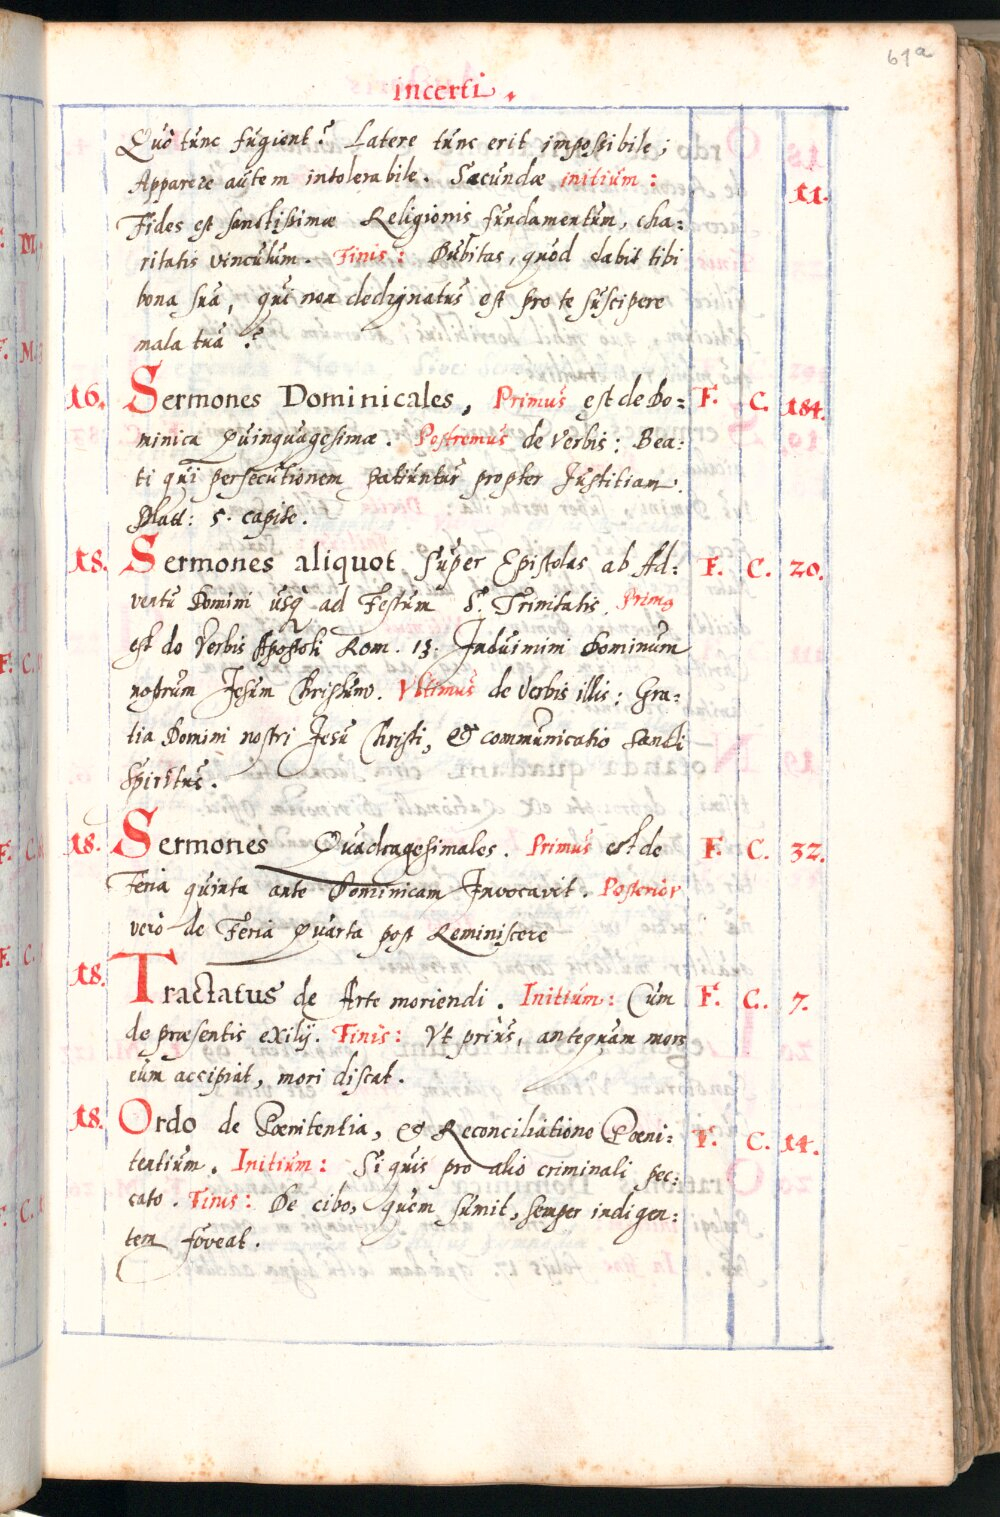 61a
incerti.
Quò tunc fugient? Latere tunc erit impossibile;
Apparere autem intolerabile. Secundæ initium: 11.
Fides est sanctissimæ Religionis fundamentum, cha:
ritatis vinculum. Finis: Dubitas, quòd dabit tibi
bona sua, qui non dedignatus est pro te suscipere
mala tua?
16. Sermones Dominicales, Primus est de Do: F. C. 184.
minica Quinquagesimæ. Postremus de verbis: Bea:
ti qui persecutionem patiuntur propter Justitiam.
Matt: 5. capite.
18. Sermones aliquot super Epistolas ab Ad: F. C. 20.
ventu Domini usq ad Festum S. Trinitatis. Primus
est de verbis Apostoli Rom. 13. Induimini Dominum
nostrum Jesum Christum. Vltimus de verbis illis: Gra:
tia Domini nostri Jesu Christi, & communicatio Sancti
Spiritus.
18. Sermones Quadragesimales. Primus est de F. C. 32.
Feria quinta ante Dominicam Invocavit. Posterior
verò de Feria Quarta post Reminiscere
18. Tractatus de Arte moriendi. Initium: Cum F. C. 7.
de præsentis exilij. Finis: Vt priùs, antequam mors
eum accipiat, mori discat.
18. Ordo de Pœnitentia, & Reconciliatione Pœni: F. C. 14.
tentium. Initium: Si quis pro alio criminali pec:
cato. Finis: De cibo, quem sumit, semper indigen:
tem foveat.